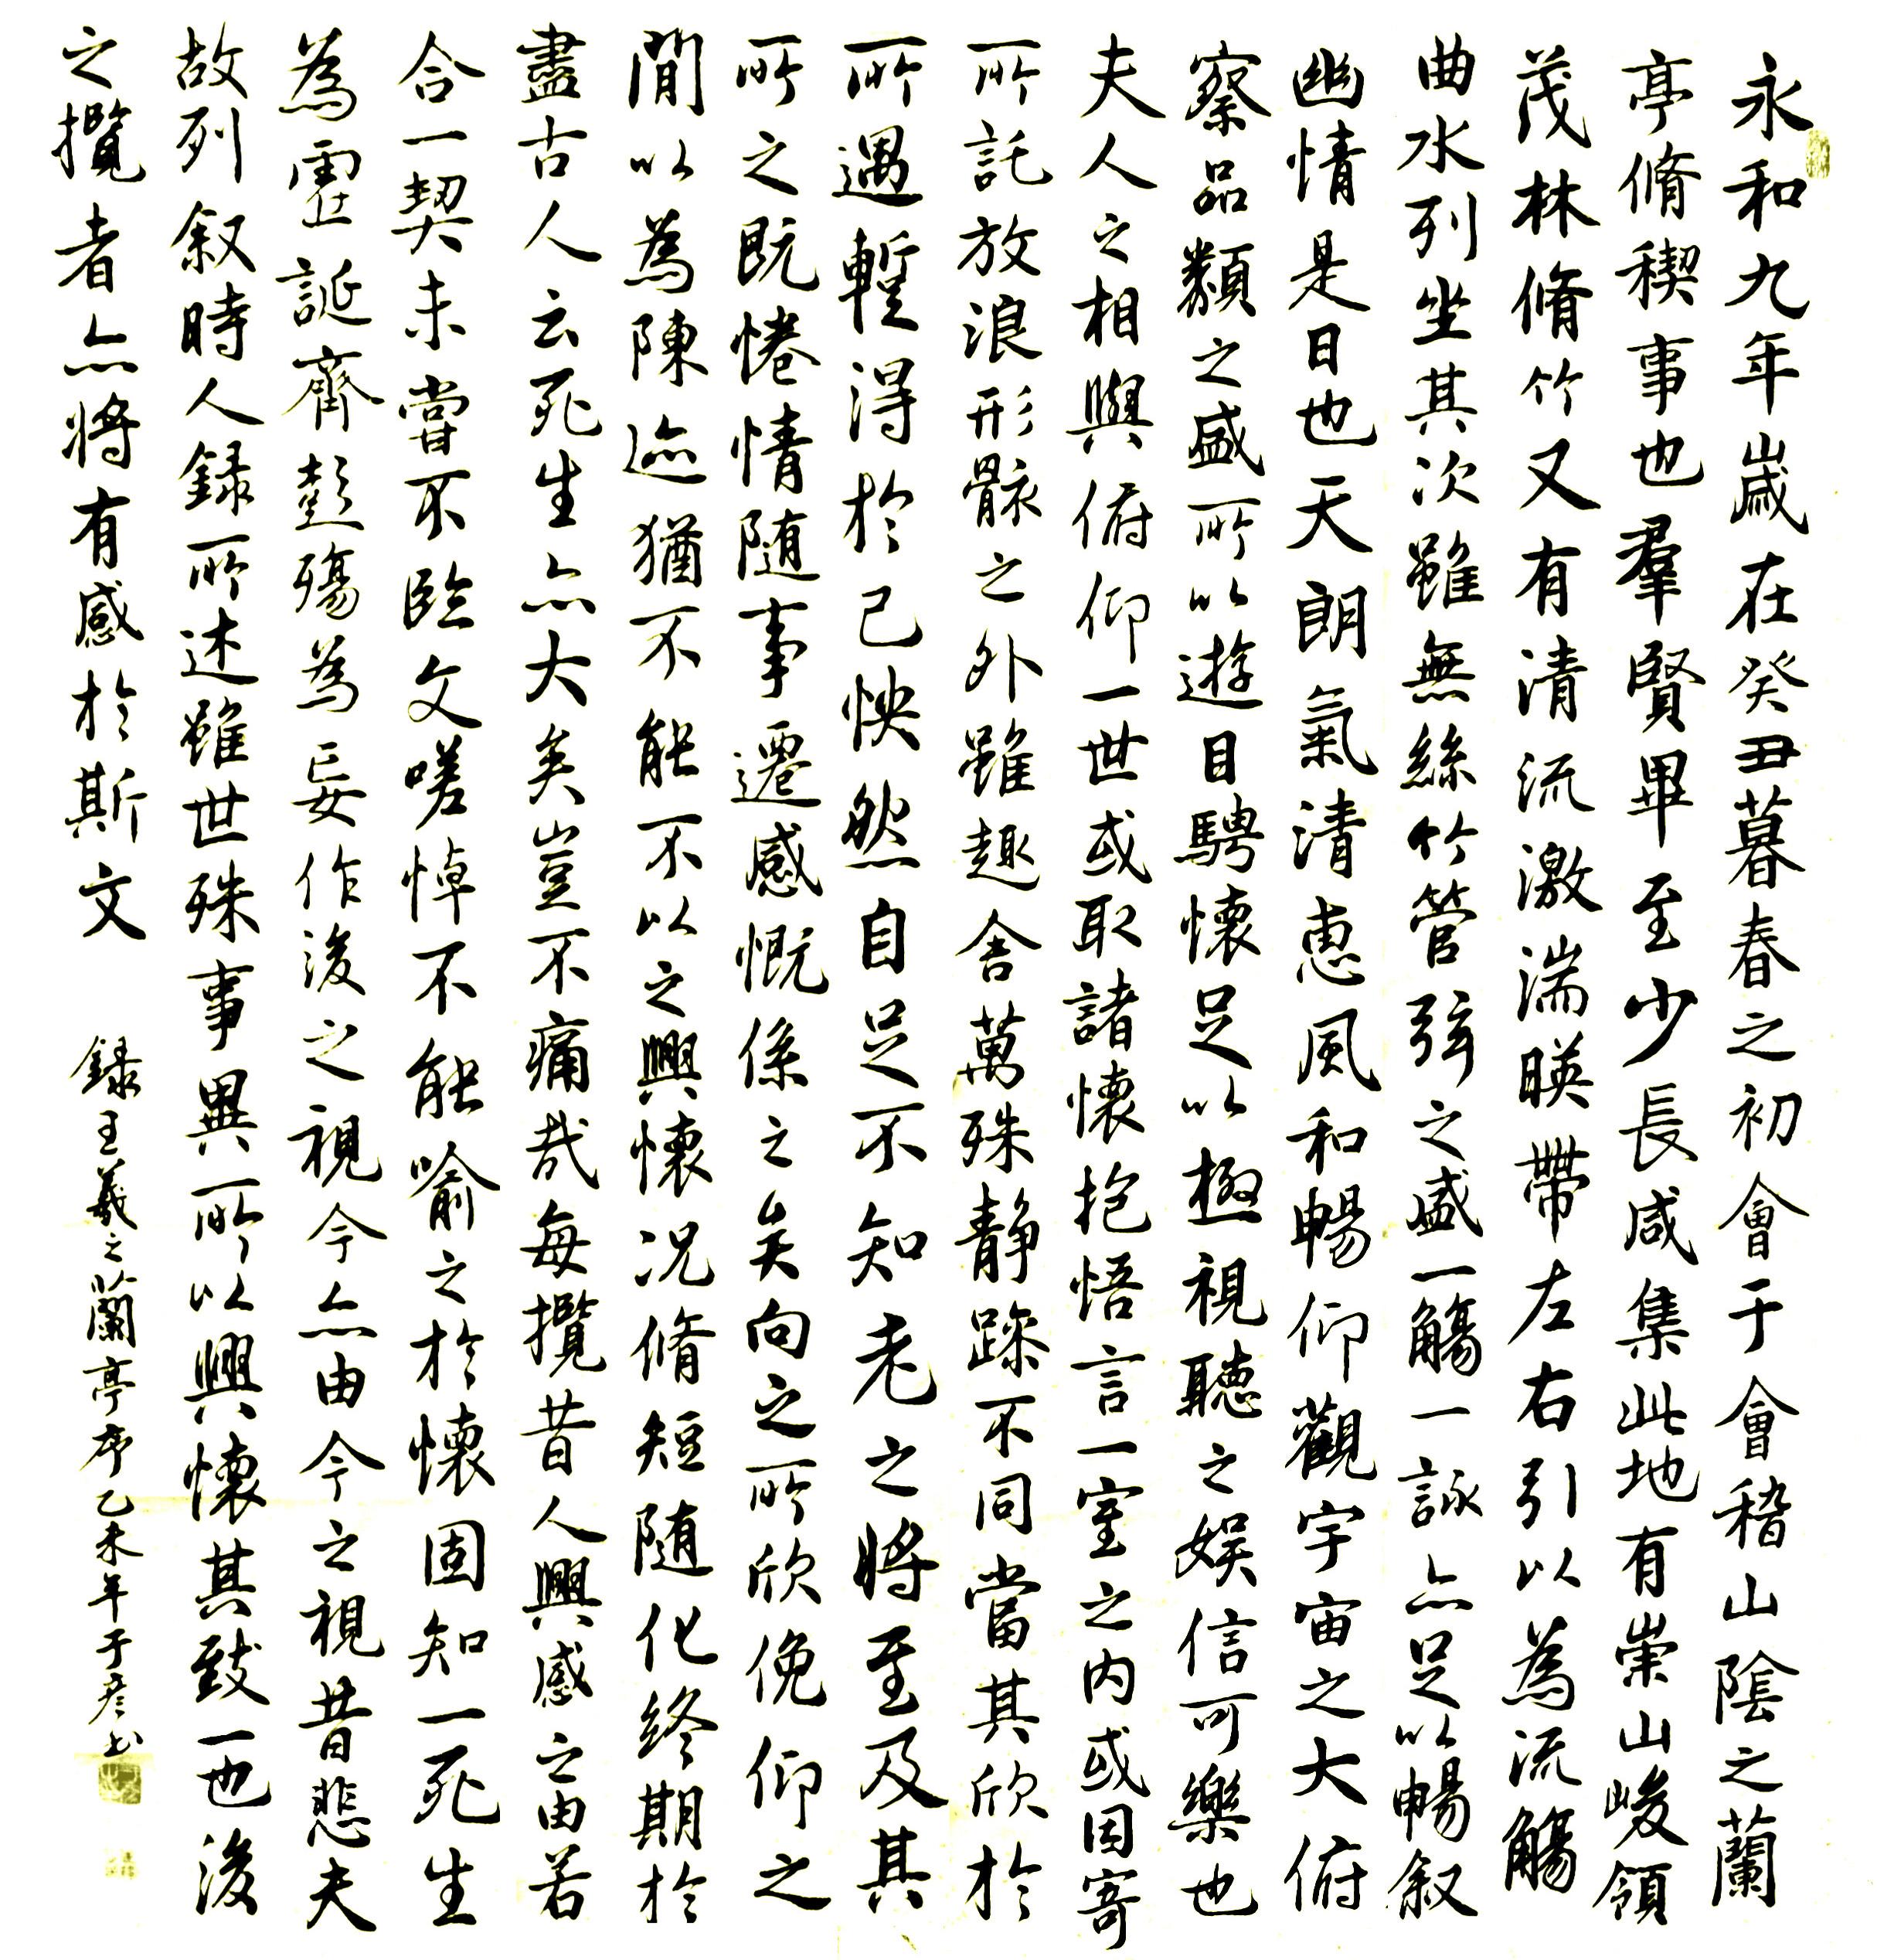 永和九年歲在癸丑暮春之初會于會稽山陰之蘭
亭脩稧事也羣賢畢至少長咸集此地有崇山峻領
茂林脩竹又有清流激湍暎帶左右引以為流觴
曲水列坐其次雖無絲竹管弦之盛一觴一詠亦足以暢叙
幽情是日也天朗氣清惠風和暢仰觀宇宙之大俯
察品類之盛所以遊目騁懷足以極視聽之娛信可樂也
夫人之相與俯仰一世或取諸懷抱悟言一室之内或因寄
所託放浪形骸之外雖趣舍萬殊静躁不同當其欣於
所遇暫得於己怏然自足不知老之將至及其
所之既惓情随事遷感慨係之矣向之所欣俛仰之
閒以為陳迹猶不能不以之興懷况脩短随化終期於
盡古人云死生亦大矣豈不痛哉每攬昔人興感之由若
合一契未嘗不臨文嗟悼不能喻之於懷固知一死生
為虛誕齊彭殤為妄作後之視今亦由今之視昔悲夫
故列叙時人録所述雖世殊事異所以興懷其致一也後
之攬者亦將有感於斯文 録王羲之蘭亭序乙未年于彦书